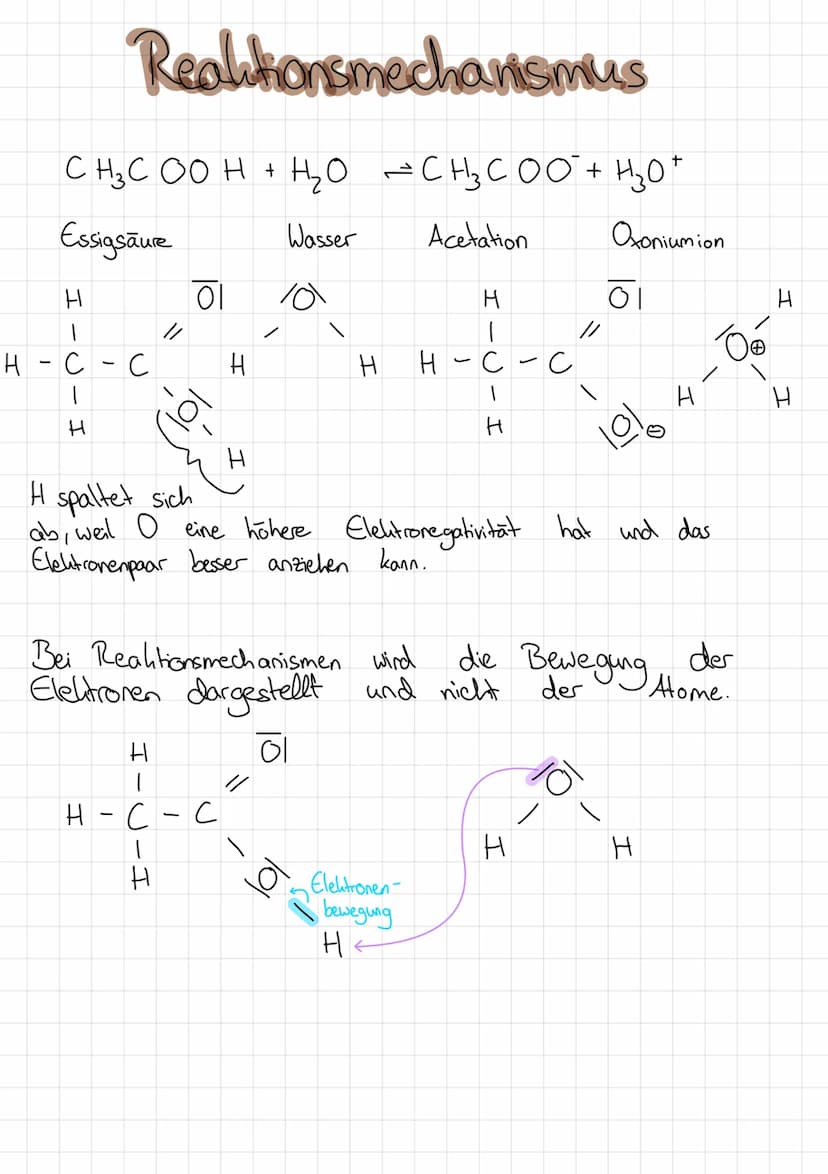 Reaktionsmechanismus
CH₃COOH + H₂O ⇌ CH₃COO⁻ + H₃O⁺
Essigsäure Wasser Acetation Oxoniumion
H O O H O H
H - C - C H H H - C - C O ⊕
H O H O ⊖ H H
H
H spaltet sich
ab, weil O eine höhere Elektronegativität hat und das
Elektronenpaar besser anziehen kann.
Bei Reaktionsmechanismen wird die Bewegung der
Elektronen dargestellt und nicht der Atome.
H O O
H - C - C H H
H O Elektronen-
bewegung
H